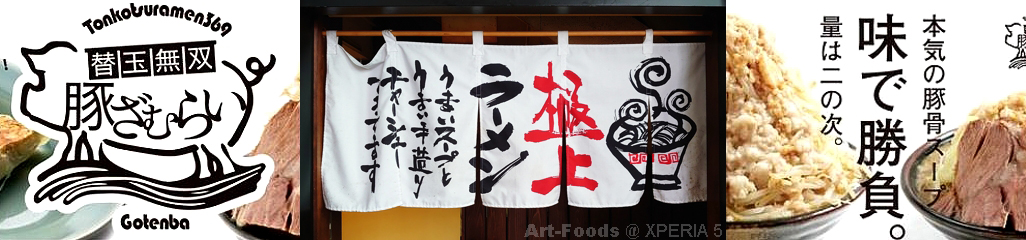 Tonkotsuramen369
替玉無双
豚ざむらい
Gotenba
極上
ラーメン
うまいスープと
うまい手造り
チャーシュー
Art-Foods @ XPERIA 5
本気の豚骨スープ
味で勝負。
量は二の次。